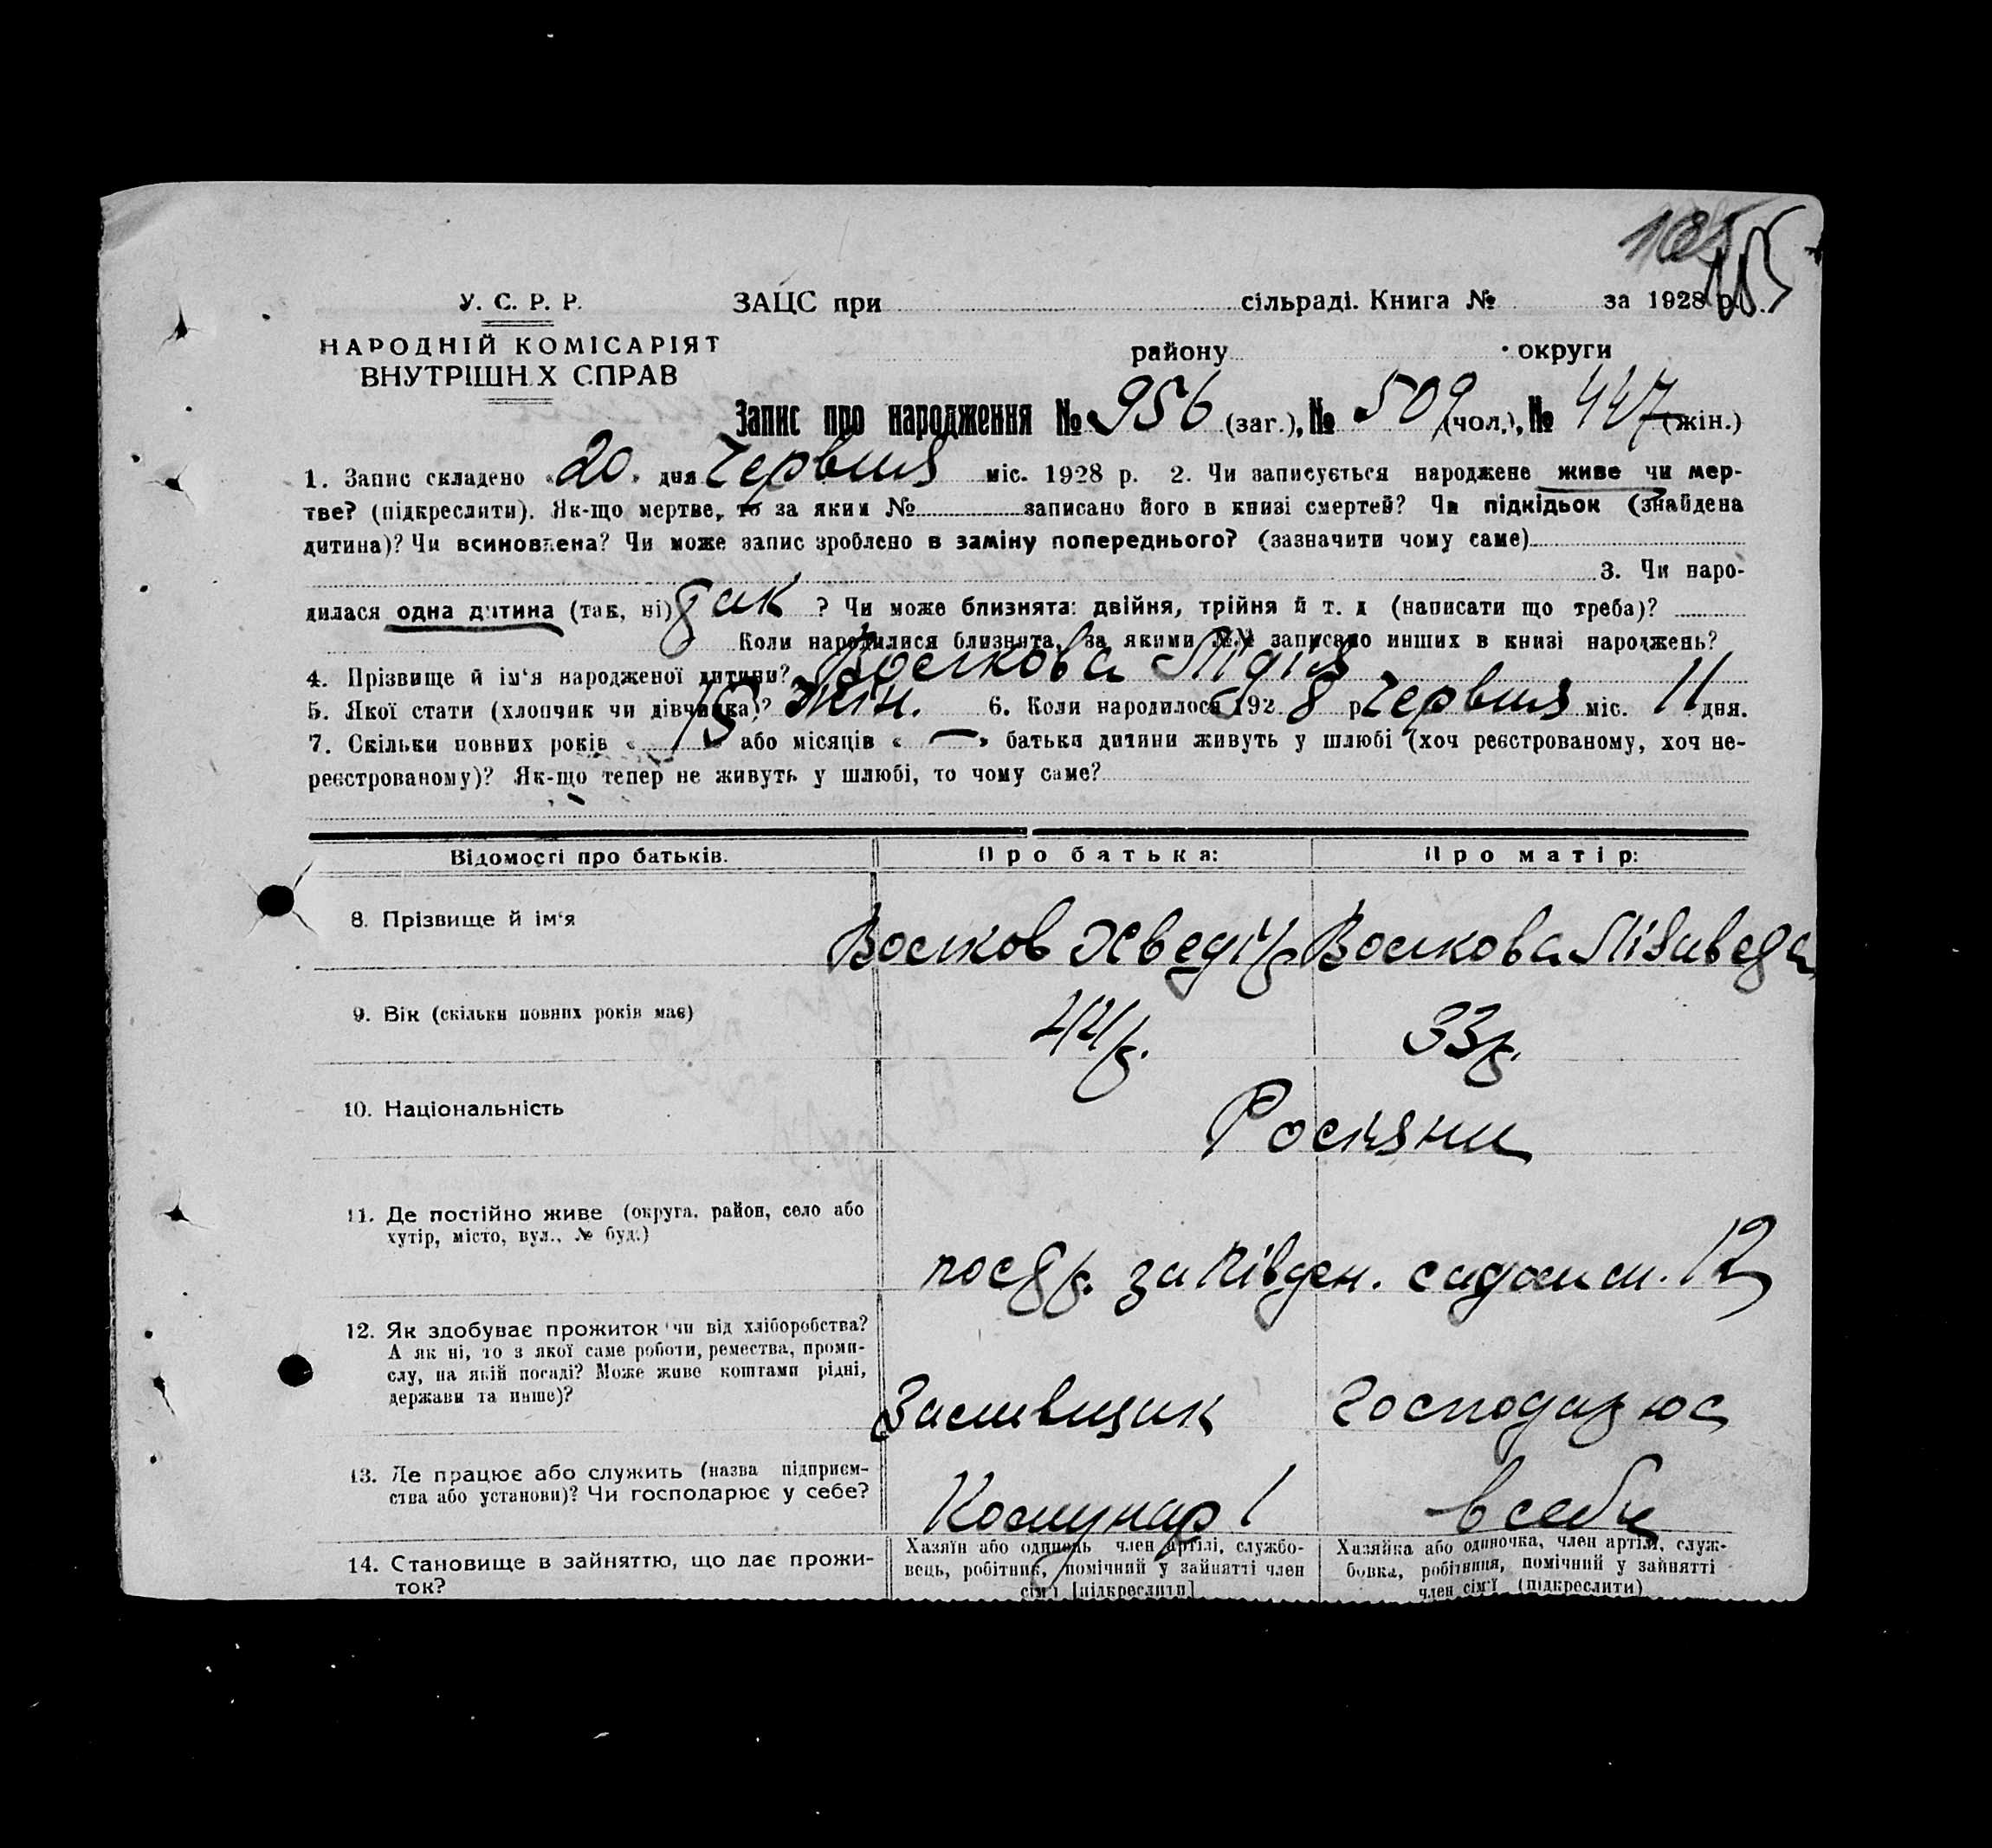 105
У. С. Р. Р.
ЗАЦС при сільраді. Книга № за 1928 р.
НАРОДНІЙ КОМІСАРІЯТ
ВНУТРІШН Х СПРАВ
району округи
Запис про народження № 956 (заг.), № 509 (чол.), № 447 (жін.)
1. Запис складено «20» дня Червня міс. 1928 р. 2. Чи записується народжене живе чи мер-
тве? (підкреслити). Як-що мертве, то за яким № записано його в книзі смертей? Чи підкідьок (знайдена
дитина)? Чи всиновлена? Чи може запис зроблено в заміну попереднього? (зазначити чому саме)
3. Чи наро-
дилася одна дитина (так, ні) так ? Чи може близнята: двійня, трійня й т. д (написати що треба)?
Коли народилися близнята, за якими №№ записано инших в книзі народжень?
4. Прізвище й ім'я народженої дитини? Волкова Лідія
5. Якої стати (хлопчик чи дівчинка)? жін. 6. Коли народилося 1928 р Червня міс. 11 дня.
7. Скільки повних років « 15 » або місяців « — » батьки дитини живуть у шлюбі (хоч реєстрованому, хоч не-
реєстрованому)? Як-що тепер не живуть у шлюбі, то чому саме?
Відомості про батьків. Про батька: Про матір:
8. Прізвище й ім'я Волков Хведір Волкова Лізавета
9. Вік (скільки повних років має) 33р.
10. Національність Росіяни
11. Де постійно живе (округа, район, село або
хутір, місто, вул., № буд.)
за Півден. 12
12. Як здобуває прожиток чи від хліборобства?
А як ні, то з якої саме роботи, ремества, проми-
слу, на якій посаді? Може живе коштами рідні,
держави та инше)?
Заливщик господарює
13. Де працює або служить (назва підприєм-
ства або установи)? Чи господарює у себе?
Комунар в себе
14. Становище в зайняттю, що дає прожи-
ток?
Хазяїн або одинець член артілі, службо-
вець, робітник, помічний у зайнятті член
сім'ї [підкреслити]
Хазяйка або одиночка, член артілі, служ-
бовка, робітниця, помічний у зайнятті
член сім'ї (підкреслити)